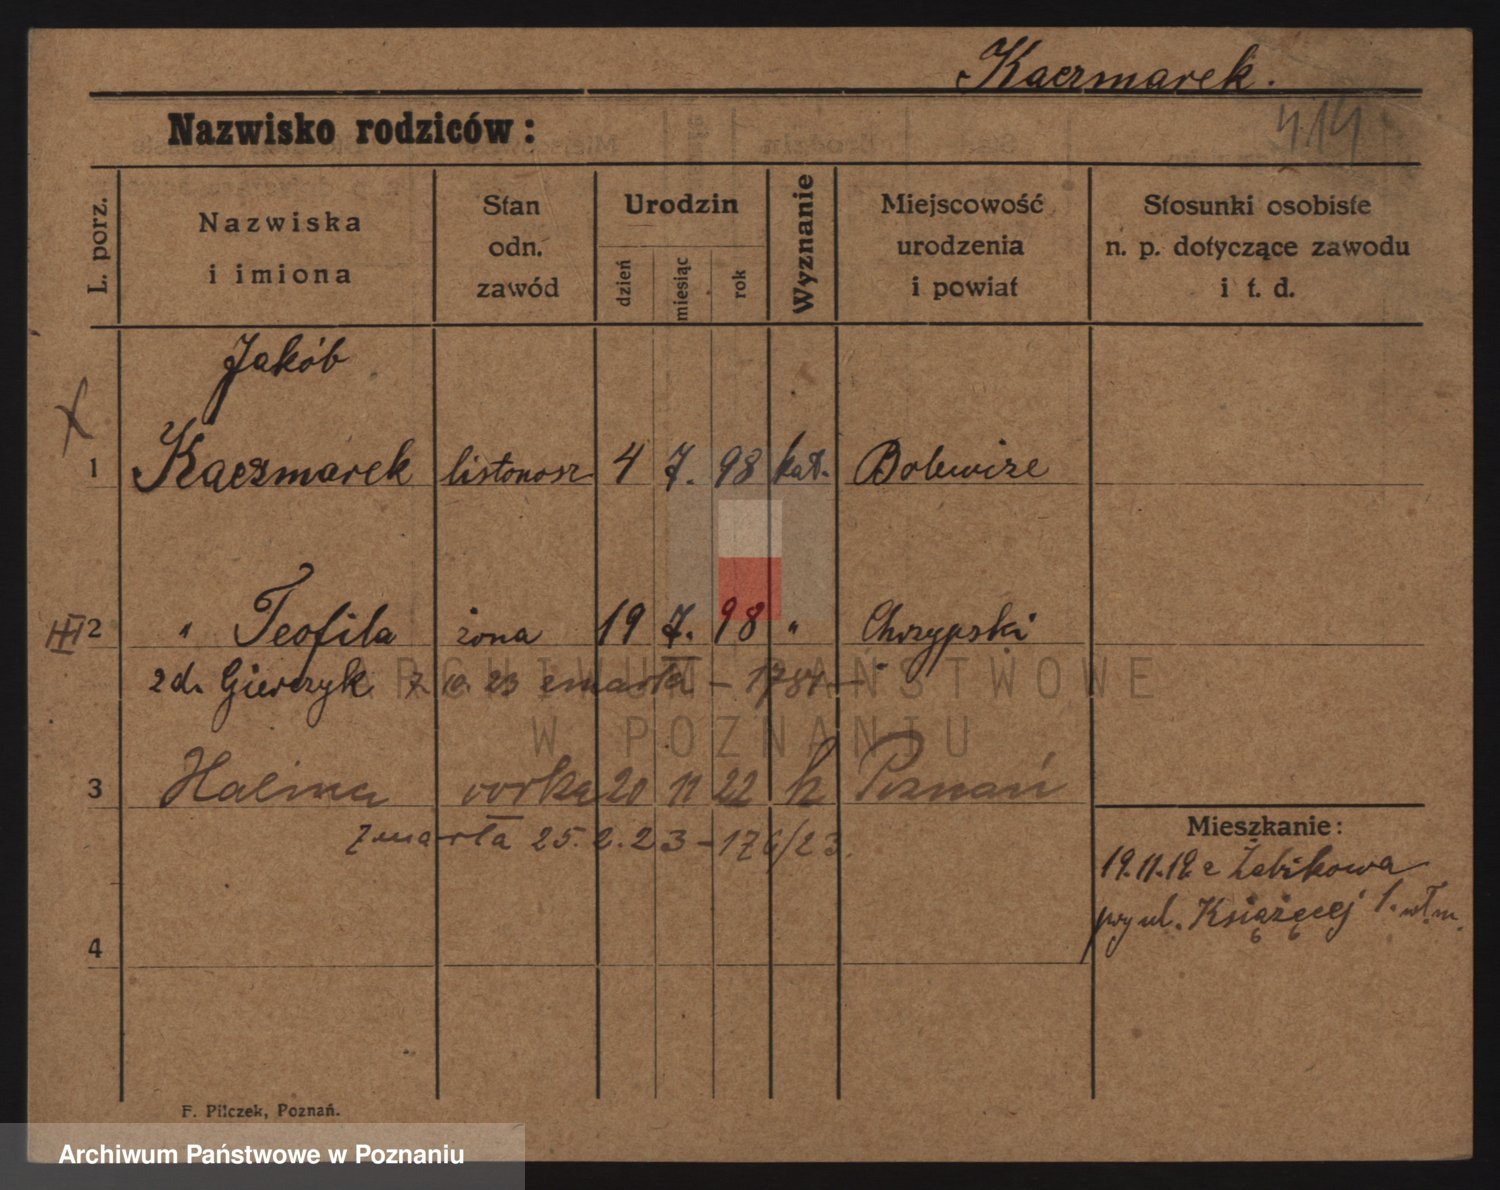 Kaczmarek.
Nazwisko rodziców:
414
L. porz.
Nazwiska
i imiona
Stan
odn.
zawód
Urodzin
dzień
miesiąc
rok
Wyznanie
Miejscowość
urodzenia
i powiat
Stosunki osobiste
n. p. dotyczące zawodu
i t. d.
Jakób
1 Kaczmarek listonosz 4 7. 98 kat. Bolewice
2 " Teofila żona 19 7. 98 " Chrzypski
zd. Gierczyk 7. 10. 23 zmarła - 1784 -
3 Halina córka 20 11 22 k Poznań
Zmarła 25. 2. 23 - 176/23.
4
Mieszkanie:
19.11.19. z Żabikowa
przy ul. Książęcej 1. wł. m.
F. Pilczek, Poznań.
ARCHIWUM PAŃSTWOWE
W POZNANIU
Archiwum Państwowe w Poznaniu